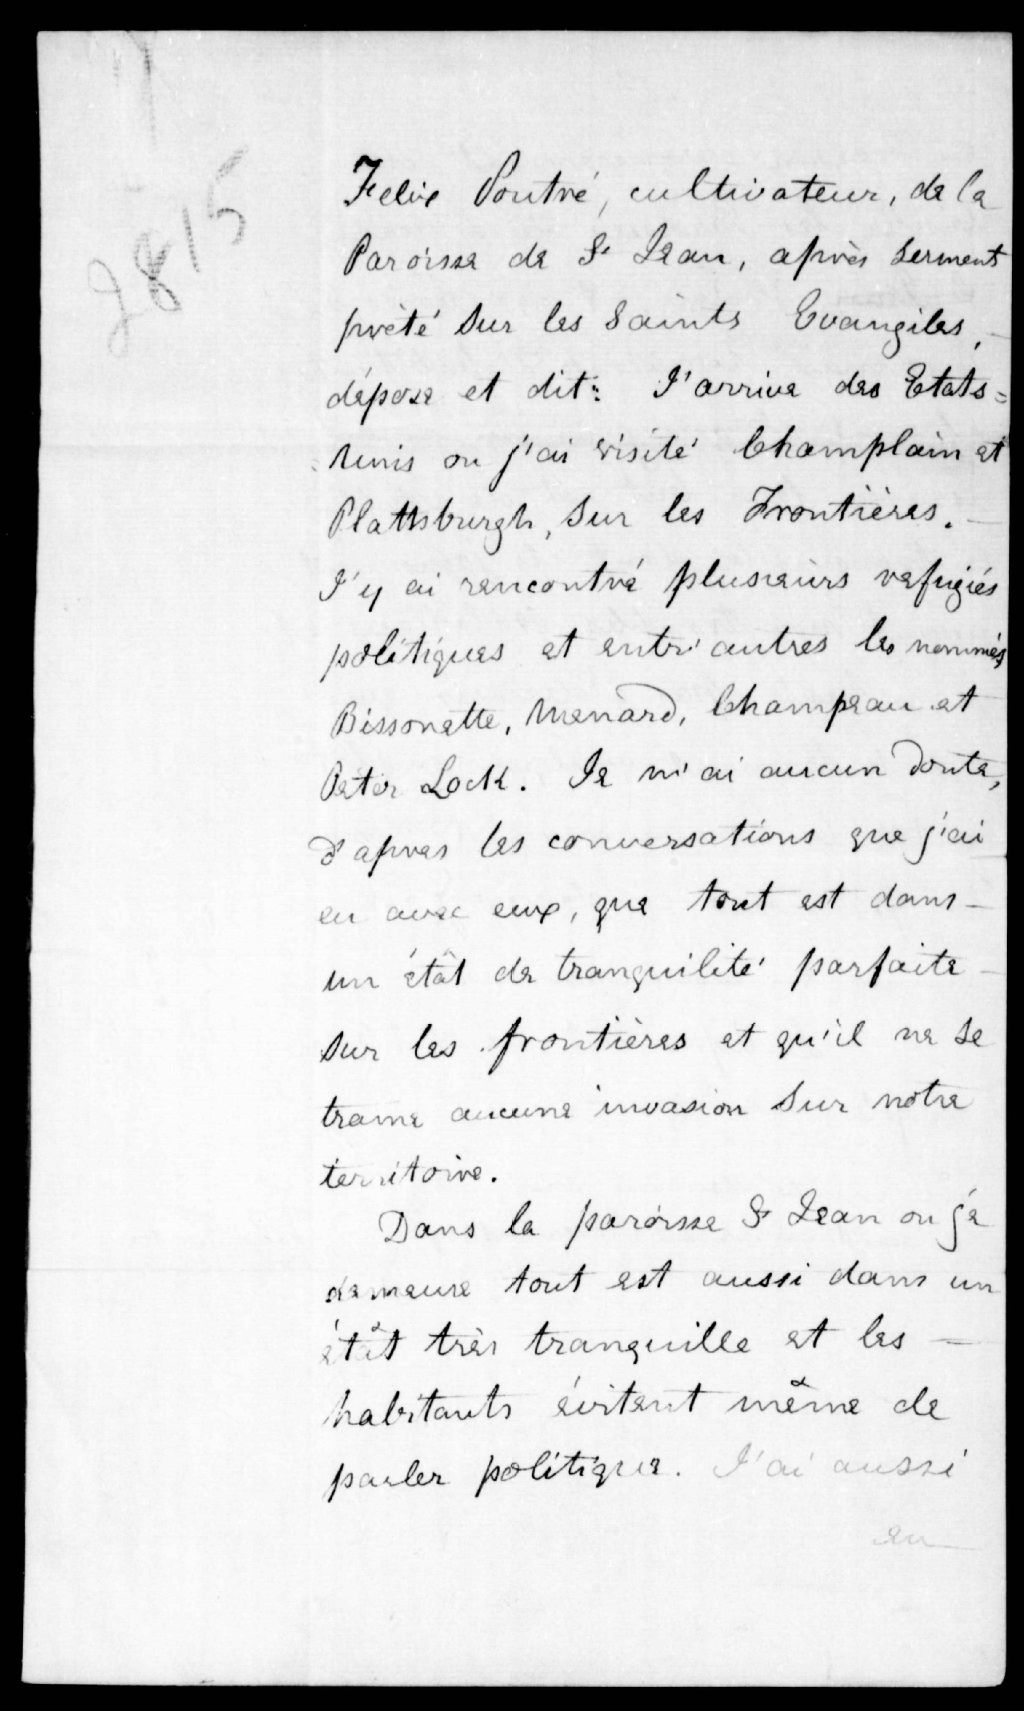 2815
Felix Poutré, cultivateur, de la
Paroisse de St Jean, après serment
prêté sur les Saints Evangiles, -
dépose et dit: J'arrive des Etats=
Unis ou j'ai visité Champlain et
Plattsburgh, sur les Frontières. -
J'y ai rencontré plusieurs refugiés
politiques et entr'autres les nommés
Bissonette, Menard, Champeau et
Peter Lock. Je n'ai aucun doute,
d'apres les conversations que j'ai
eu avec eux, que tout est dans -
un êtât de tranquilité parfaite -
sur les frontières et qu'il ne se
trame aucune invasion sur notre
territoire.
Dans la paroisse St Jean ou je
demeure tout est aussi dans un
étât très tranquille et les -
habitants évitent même de
parler politique. J'ai aussi
eu